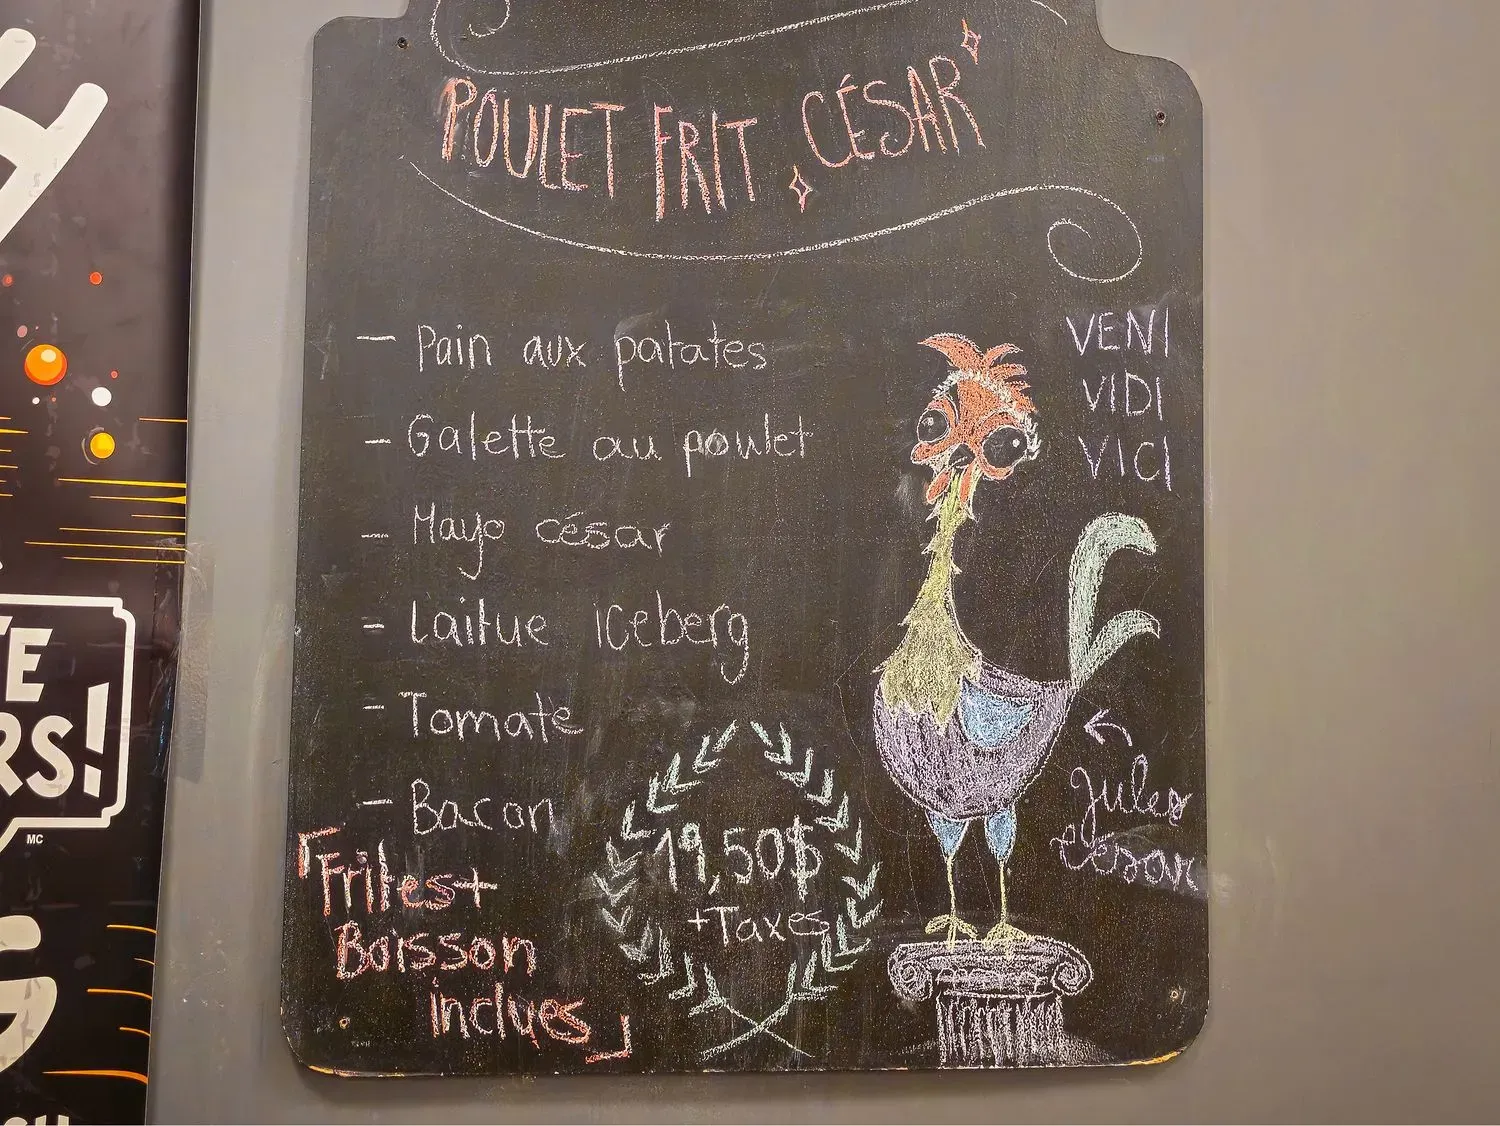 POULET FRIT CÉSAR
- Pain aux patates
- Galette au poulet
- Mayo césar
- Laitue iceberg
- Tomate
- Bacon
Frites+
Boisson
inclues
19,50$
+Taxes
VENI
VIDI
VICI
Jules
César
TE
RS!
MC